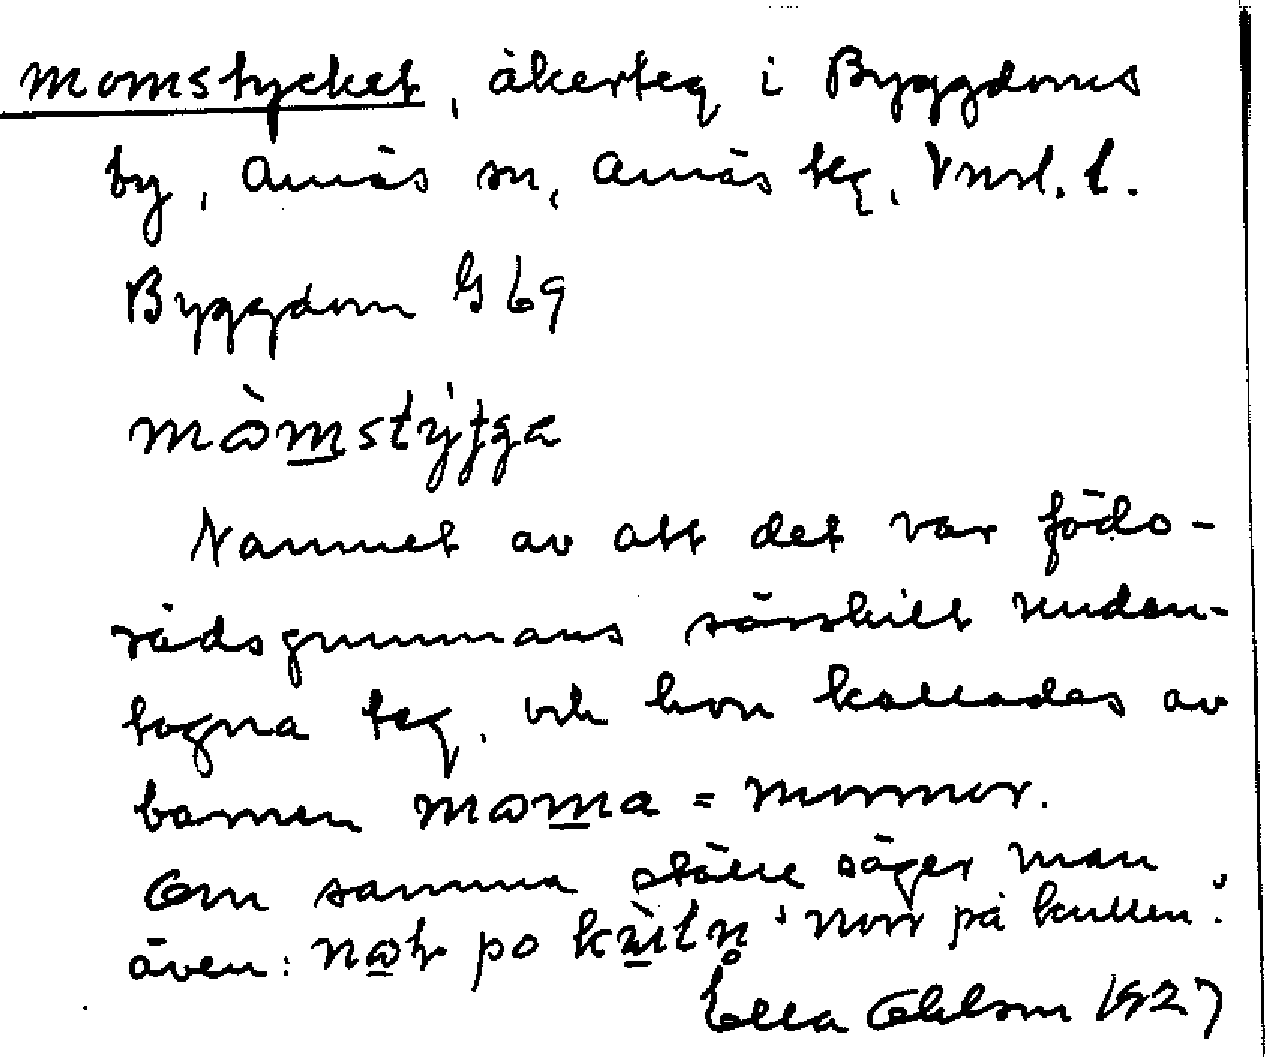 Momstycket, åkerteg i Byggdoms
by, Arnäs sn, Arnäs tlg, Vnrl. l.
Byggdom G 69
Namnet av att det var födo-
rådsgummans särskilt unden-
togna teg, och hon kallades av
barnen moma = mormor.
Om samma ställe säger man
även: po 'norr på kullen'.
Ella Ohlson 1927